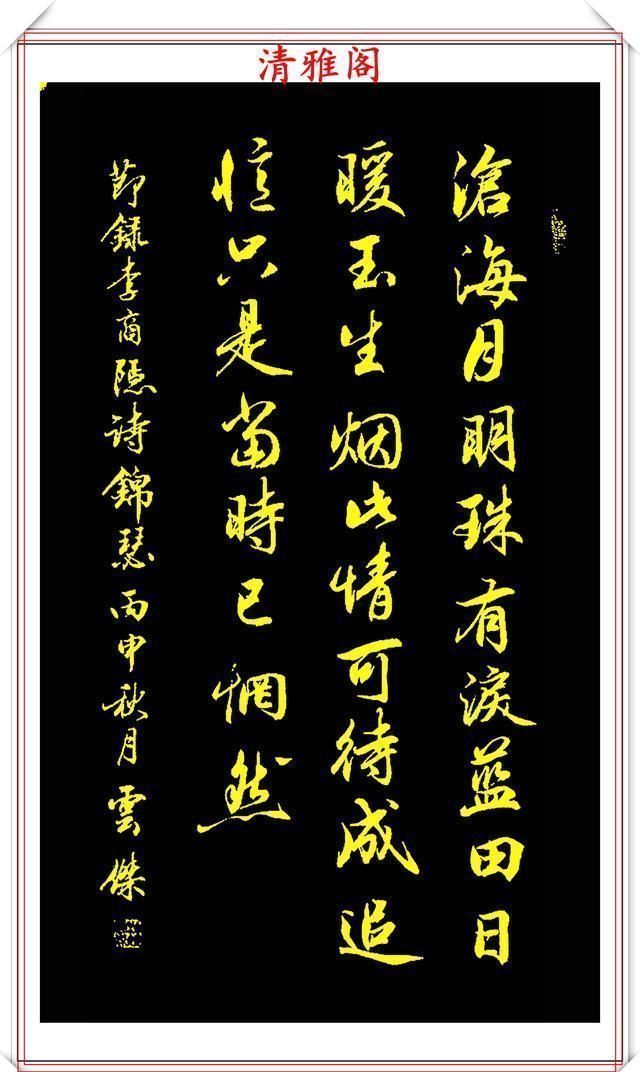 清雅阁
滄海月明珠有淚蓝田日
暖玉生烟此情可待成追
憶只是當時已惘然
節録李商隱诗錦瑟丙申秋月雲傑